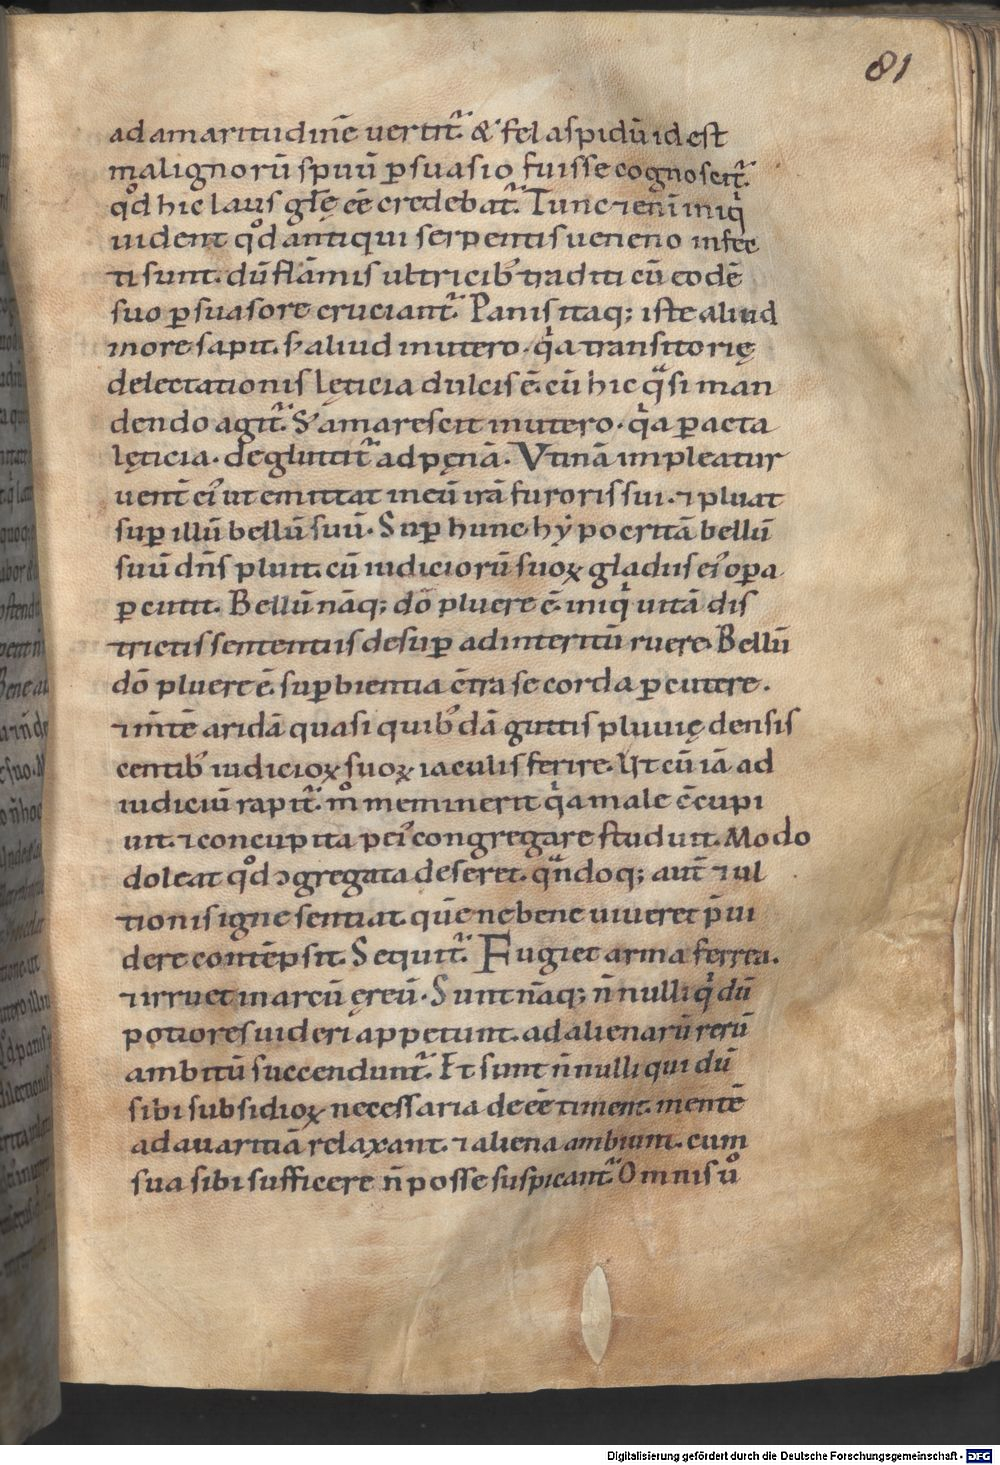 81
ad amaritudinē uertit᷑. & fel aspidū id est
malignorū spūū ꝑsuasio fuisse cognoscit᷑.
qd̊ hic laus glę̄ eē credebat᷑. Tunc ⁊enī iniqͥ
uident qd̊ antiqui serpentis ueneno infec
ti sunt. dū flāmis ultricib; traditi cū eodē
suo ꝑsuasore cruciant᷑. Panis itaq; iste aliud
in ore sapit. s; aliud in utero. qͥa transitorię
delectationis lęticia dulcis ē. cū hic qͣsi man
dendo agit᷑. S; amarescit in utero. qͥa ꝑacta
lęticia. deglutit᷑ ad pęnā. Vtinā impleatur
uent̄ ei' ut emittat in eū irā furoris sui. ⁊ pluat
suꝑ illū bellū suū. Suꝑ hunc hẏpocritā bellū
suū dn̄s pluit. cū iudiciorū suoꝝ gladiis ei' oꝑa
ꝑcutit. Bellū nāq; dō pluere ē. iniqͥ uitā dis
trictis sententiis desuꝑ ad interitū ruere. Bellū
dō pluere ē. suꝑbientia c̄tra se corda ꝑcutere.
⁊ m̄tē aridā quasi quib;dā guttis pluuię densis
centib; iudicioꝝ suoꝝ iaculis ferire. Ut cū iā ad
iudiciū rapit᷑. m̊ meminerit qͥa male c̄cupi
uit. ⁊ concupita pei' congregare studuit. Modo
doleat qd̊ ↄgregata deseret. qͣndoq; aut̄ ⁊ ul
tionis igne sentiat. quē ne bene uiueret p̄ui
dere contēpsit. Sequit᷑. Fugiet arma ferrea.
⁊ irruet in arcū ęreū. Sunt nāq; n̄nulli qͥ dū
potiores uideri appetunt. ad alienarū rerū
ambitū succendunt᷑. Et sunt n̄nulli qui dū
sibi subsidioꝝ necessaria deeē timent. mentē
ad auaritiā relaxant. ⁊ aliena ambiunt. cum
sua sibi sufficere n̄ posse suspicant᷑. Omnis ů
Digitalisierung gefördert durch die Deutsche Forschungsgemeinschaft - DFG